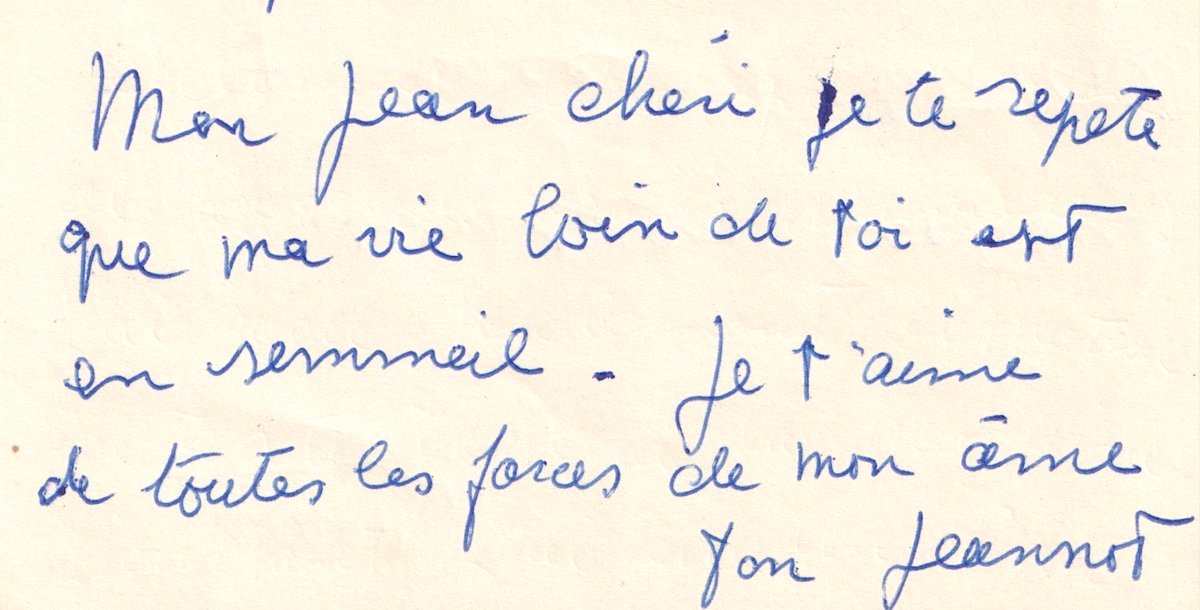 Mon Jean chéri je te repete
que ma vie loin de toi est
en sommeil. Je t'aime
de toutes les forces de mon âme
ton Jeannot